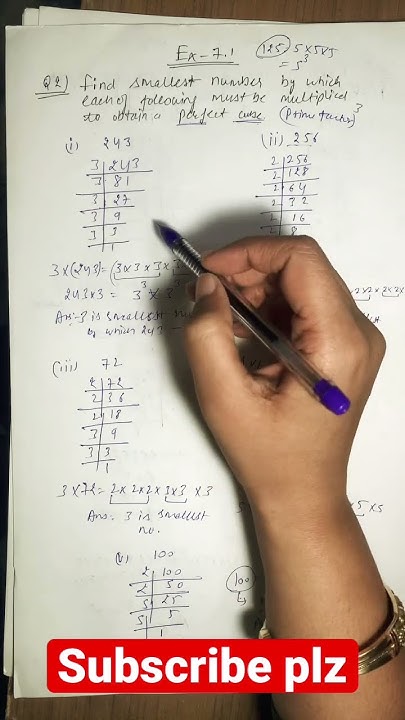 Ex-7.1
125 = 5x5x5
= 5³
Q2) find smallest number by which
each of following must be multiplied
to obtain a perfect cube (Prime factor)³
(i) 243
3 | 243
3 | 81
3 | 27
3 | 9
3 | 3
1
(ii) 256
2 | 256
2 | 128
2 | 64
2 | 32
2 | 16
2 | 8
3x(243) = (3x3x3x3
243x3 = 3³ x 3
Ans-3 is smallest
by which 243 —
(iii) 72
2 | 72
2 | 36
2 | 18
3 | 9
3 | 3
1
3x72 = 2x2x2x3x3x3
Ans. 3 is smallest
no.
5x5
(v) 100
2 | 100
2 | 50
5 | 25
5 | 5
1
100
Subscribe plz